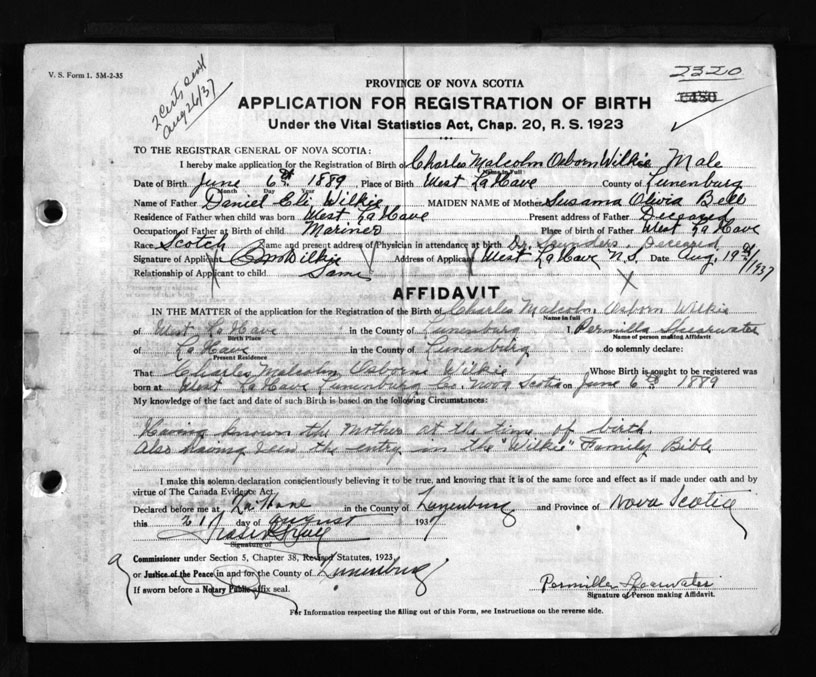 V. S. Form 1. 5M-2-35
2 Certs sent
Aug 26/37
2320
PROVINCE OF NOVA SCOTIA
APPLICATION FOR REGISTRATION OF BIRTH
Under the Vital Statistics Act, Chap. 20, R. S. 1923
TO THE REGISTRAR GENERAL OF NOVA SCOTIA:
I hereby make application for the Registration of Birth of Charles Malcolm Osborn Wilkie Male
Name in Full
Date of Birth June 6th 1889 Place of Birth West La Have County of Lunenburg
Month Day Year
Name of Father Daniel Eli Wilkie MAIDEN NAME of Mother Susama Olivia Bell
Residence of Father when child was born West La Have Present address of Father Deceased
Occupation of Father at Birth of child Mariner Place of birth of Father West La Have
Race Scotch Name and present address of Physician in attendance at birth Dr. Saunders, Deceased
Signature of Applicant Wilkie Address of Applicant West La Have N.S. Date Aug. 19th/1937
Relationship of Applicant to child Same
AFFIDAVIT
IN THE MATTER of the application for the Registration of the Birth of Charles Malcolm Osborn Wilkie
Name in full
of West La Have in the County of Lunenburg I, Permilla Spearwater
Birth Place Name of person making Affidavit
of La Have in the County of Lunenburg do solemnly declare:
Present Residence
That Charles Malcolm Osborne Wilkie Whose Birth is sought to be registered was
born at West La Have Lunenburg Co. Nova Scotia on June 6th 1889
My knowledge of the fact and date of such Birth is based on the following Circumstances:
Having known the mother at the time of birth
Also having seen the entry in the "Wilkie" Family Bible
I make this solemn declaration conscientiously believing it to be true, and knowing that it is of the same force and effect as if made under oath and by
virtue of The Canada Evidence Act.
Declared before me at La Have in the County of Lunenburg and Province of Nova Scotia
this 21 day of August 1937
Signature of
Commissioner under Section 5, Chapter 38, Revised Statutes, 1923
or Justice of the Peace in and for the County of Lunenburg
If sworn before a Notary Public affix seal.
Permilla Spearwater
Signature of Person making Affidavit.
For Information respecting the filling out of this Form, see Instructions on the reverse side.